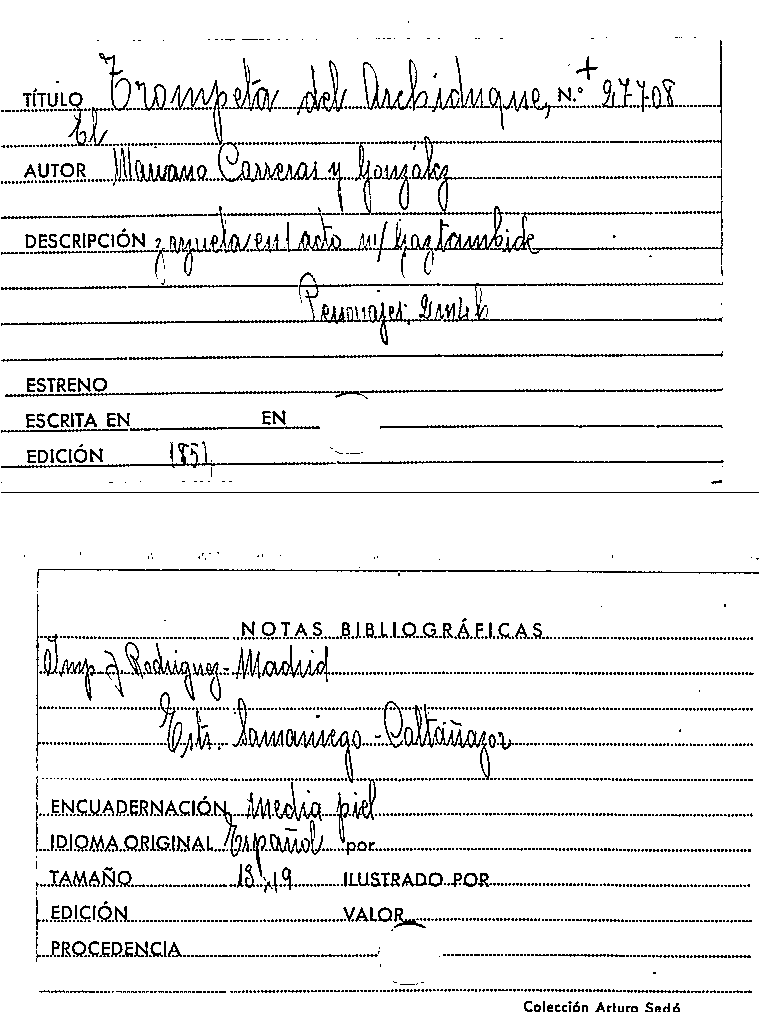 TÍTULO Trompeta del Archiduque, N.º 27708
El
AUTOR Mariano Carreras y González
DESCRIPCIÓN zarzuela en 1 acto m/ Gaztambide
Personajes,
ESTRENO
ESCRITA EN EN
EDICIÓN 1851
NOTAS BIBLIOGRÁFICAS
Imp J. Rodriguez - Madrid
Ests. Samaniego - Caltañazor
ENCUADERNACIÓN Media piel
IDIOMA ORIGINAL Español por
TAMAÑO 13x19 ILUSTRADO POR
EDICIÓN VALOR
PROCEDENCIA
Colección Arturo Sedó